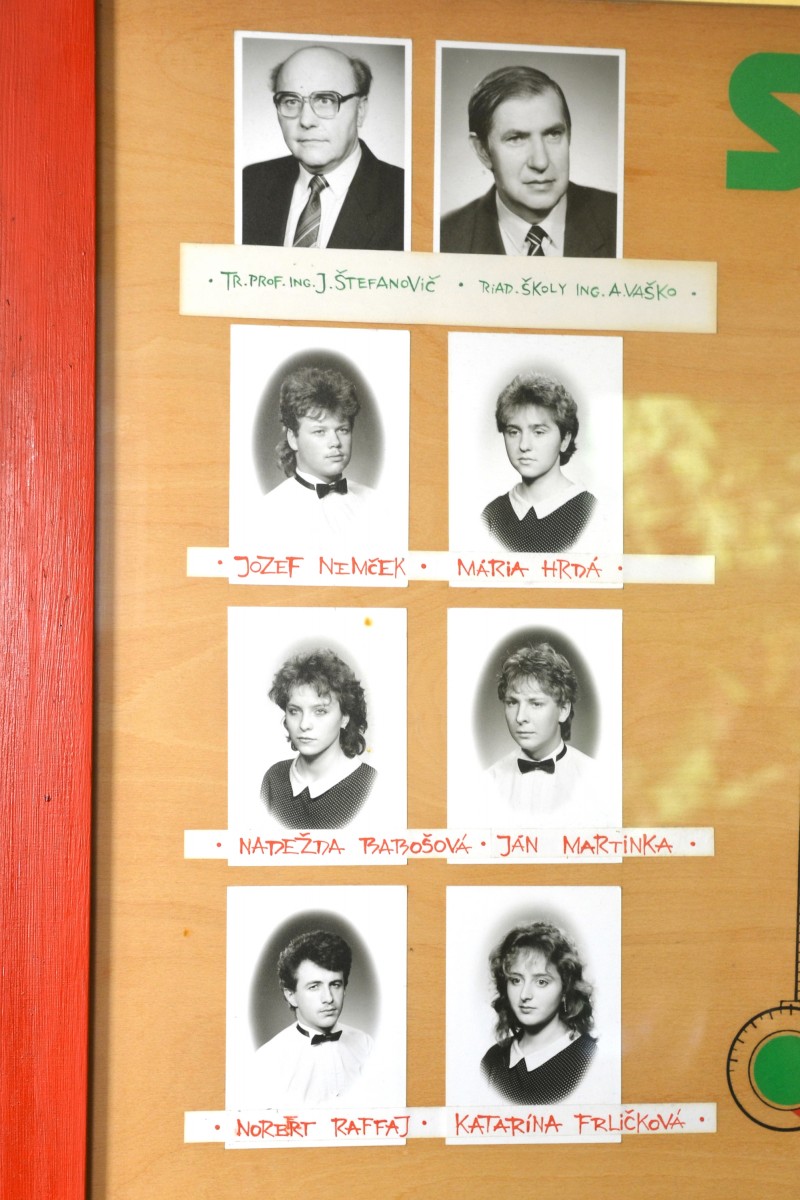 • TR. PROF. ING. J. ŠTEFANOVIČ • RIAD. ŠKOLY ING. A. VAŠKO •
• JOZEF NEMČEK • MÁRIA HRDÁ •
• NADEŽDA BABOŠOVÁ • JÁN MARTINKA •
• NORBERT RAFFAJ • KATARÍNA FRLIČKOVÁ •